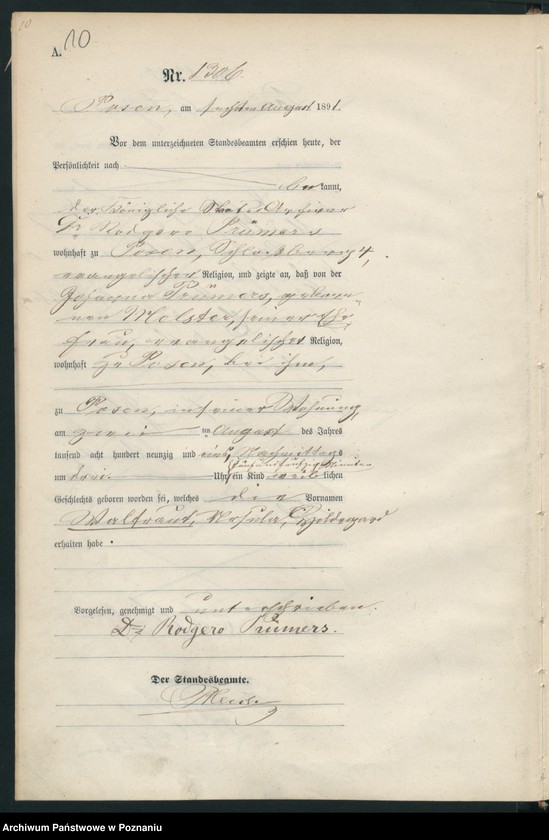 10
A. 10
Nr. 1306
Posen, am sechsten August 1891.
Vor dem unterzeichneten Standesbeamten erschien heute, der
Persönlichkeit nach
be kannt,
der Königliche Staats Archivar
Dr. Rodgero Prümers
wohnhaft zu Posen, Schlossberg 4,
evangelischer Religion, und zeigte an, daß von der
Johanna Prümers, gebore-
nen Molster, seiner Ehe
frau, evangelischer Religion,
wohnhaft zu Posen, bei ihm,
zu Posen, in seiner Wohnung,
am zwei ten August des Jahres
tausend acht hundert neunzig und eins, Nachmittags
um drei Uhr fünfundfünfzig Minuten ein Kind weib lichen
Geschlechts geboren worden sei, welches die Vornamen
Waltraut, Ursula, Hildegard
erhalten habe.
Vorgelesen, genehmigt und unterschrieben.
Dr. Rodgero Prümers.
Der Standesbeamte.
Archiwum Państwowe w Poznaniu